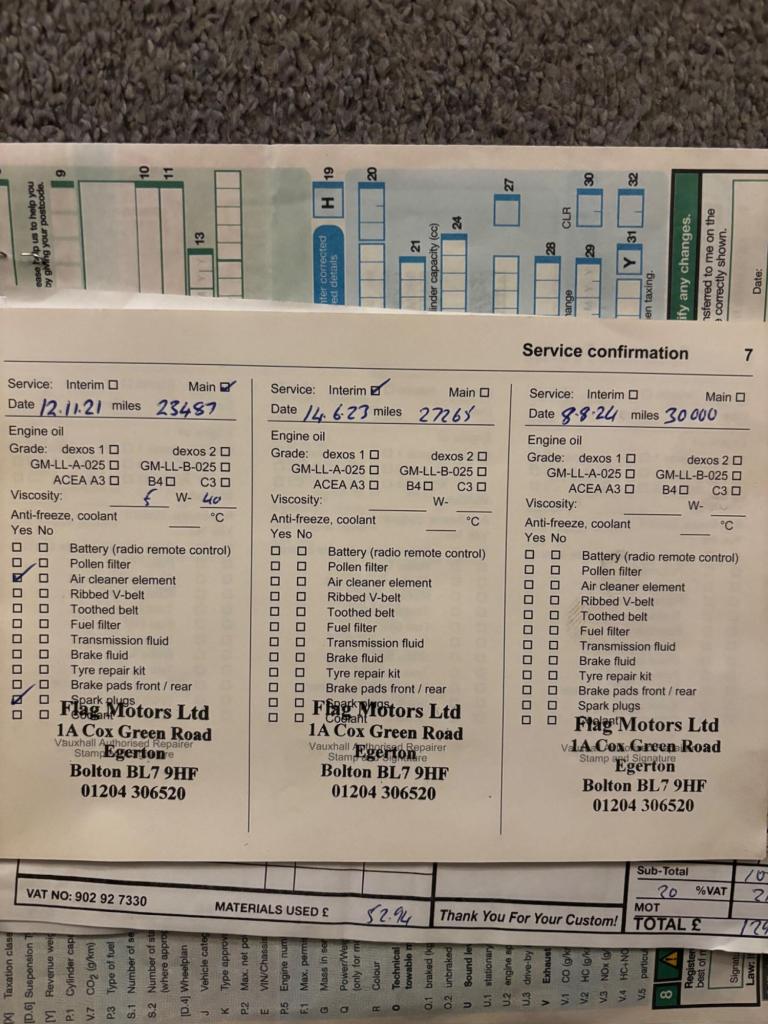 ease help us to help you
by giving your postcode.
9
10
11
13
H
19
20
21
inder capacity (cc)
24
27
28
CLR
29
30
Y
31
32
en taxing.
ify any changes.
nsferred to me on the
correctly shown.
Date:
Service confirmation 7
Service: Interim Main
Date 12.11.21 miles 23487
Engine oil
Grade: dexos 1 dexos 2
GM-LL-A-025 GM-LL-B-025
ACEA A3 B4 C3
Viscosity: 5 W- 40
Anti-freeze, coolant °C
Yes No
Battery (radio remote control)
Pollen filter
Air cleaner element
Ribbed V-belt
Toothed belt
Fuel filter
Transmission fluid
Brake fluid
Tyre repair kit
Brake pads front / rear
Spark plugs
Coolant
Flag Motors Ltd
1A Cox Green Road
Vauxhall Authorised Repairer
Egerton
Stamp and Signature
Bolton BL7 9HF
01204 306520
Service: Interim Main
Date 14.6.23 miles 27265
Engine oil
Grade: dexos 1 dexos 2
GM-LL-A-025 GM-LL-B-025
ACEA A3 B4 C3
Viscosity: W-
Anti-freeze, coolant °C
Yes No
Battery (radio remote control)
Pollen filter
Air cleaner element
Ribbed V-belt
Toothed belt
Fuel filter
Transmission fluid
Brake fluid
Tyre repair kit
Brake pads front / rear
Spark plugs
Coolant
Flag Motors Ltd
1A Cox Green Road
Vauxhall Authorised Repairer
Egerton
Stamp and Signature
Bolton BL7 9HF
01204 306520
Service: Interim Main
Date 8-8-24 miles 30000
Engine oil
Grade: dexos 1 dexos 2
GM-LL-A-025 GM-LL-B-025
ACEA A3 B4 C3
Viscosity: W-
Anti-freeze, coolant °C
Yes No
Battery (radio remote control)
Pollen filter
Air cleaner element
Ribbed V-belt
Toothed belt
Fuel filter
Transmission fluid
Brake fluid
Tyre repair kit
Brake pads front / rear
Spark plugs
Coolant
Flag Motors Ltd
1A Cox Green Road
Egerton
Stamp and Signature
Bolton BL7 9HF
01204 306520
VAT NO: 902 92 7330
MATERIALS USED £ 52.94
Thank You For Your Custom!
Sub-Total
20 %VAT
MOT
TOTAL £
[X] Taxation class
[D.6] Suspension T
[Y] Revenue wei
P.1 Cylinder cap
V.7 CO2 (g/km)
P.3 Type of fuel
S.1 Number of se
S.2 Number of sta
(where appro
[D.4] Wheelplan
J Vehicle categ
K Type approv
P.2 Max. net po
E VIN/Chassi
P.5 Engine num
F.1 Max. permi
G Mass in se
Q Power/Wei
(only for m
R Colour
O Technical
towable m
O.1 braked (kg
O.2 unbraked
U Sound lev
U.1 stationary
U.2 engine sp
U.3 drive-by
V Exhaust
V.1 CO (g/k
V.2 HC (g/k
V.3 NOx (g/
V.4 HC+NO
V.5 particu
8
Registere
best of m
Signat
Law: